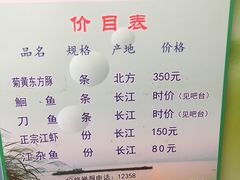 价目表
品名 规格 产地 价格
菊黄东方豚 条 北方 350元
鮰鱼 条 长江 时价(见吧台)
刀鱼 条 长江 时价(见吧台)
正宗江虾 份 长江 150元
江杂鱼 份 长江 80元
价格举报电话:12358